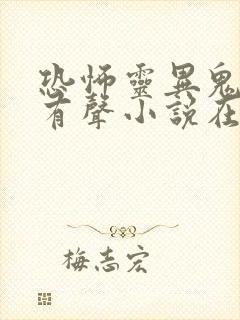 恐怖靈異鬼
有聲小說在
梅志宏